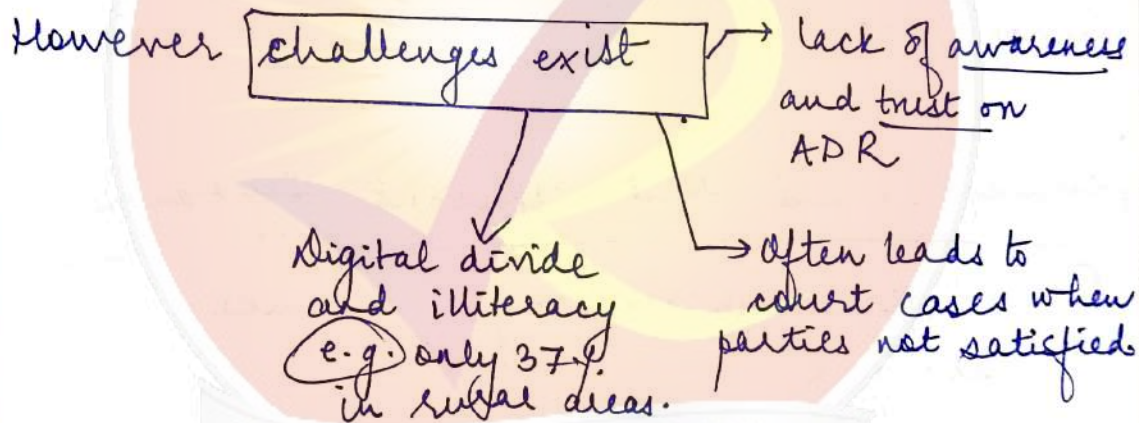 However challenges exist
lack of awareness
and trust on
ADR
Digital divide
and illiteracy
e.g. only 37%
in rural areas.
Often leads to
court cases when
parties not satisfied.